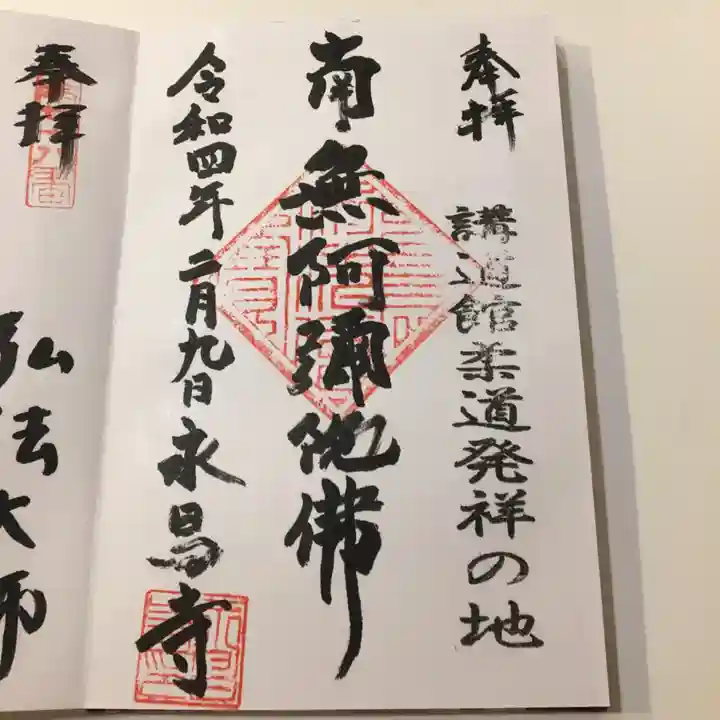 奉拝
講道館柔道発祥の地
南無阿彌陀佛
令和四年二月九日
永昌寺
奉拝
弘法大師